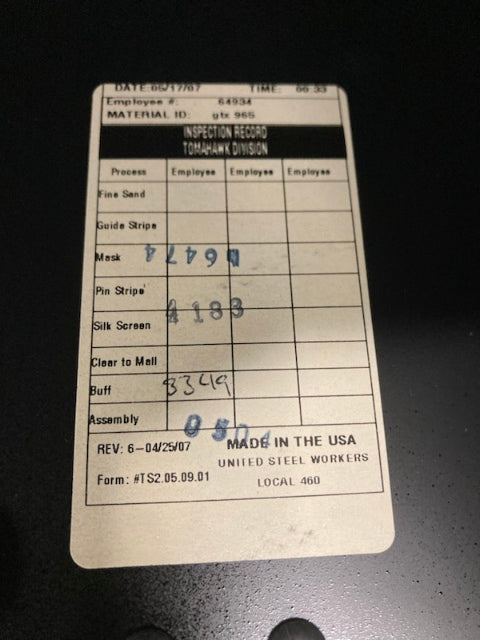 DATE:05/17/07 TIME: 06:33
Employee #: 64934
MATERIAL ID: gtx 965
INSPECTION RECORD
TOMAHAWK DIVISION
Process Employee Employee Employee
Fine Sand
Guide Stripe
Mask
Pin Stripe
Silk Screen
Clear to Mall
Buff 3349
Assembly
REV: 6-04/25/07 MADE IN THE USA
UNITED STEEL WORKERS
Form: #TS2.05.09.01 LOCAL 460